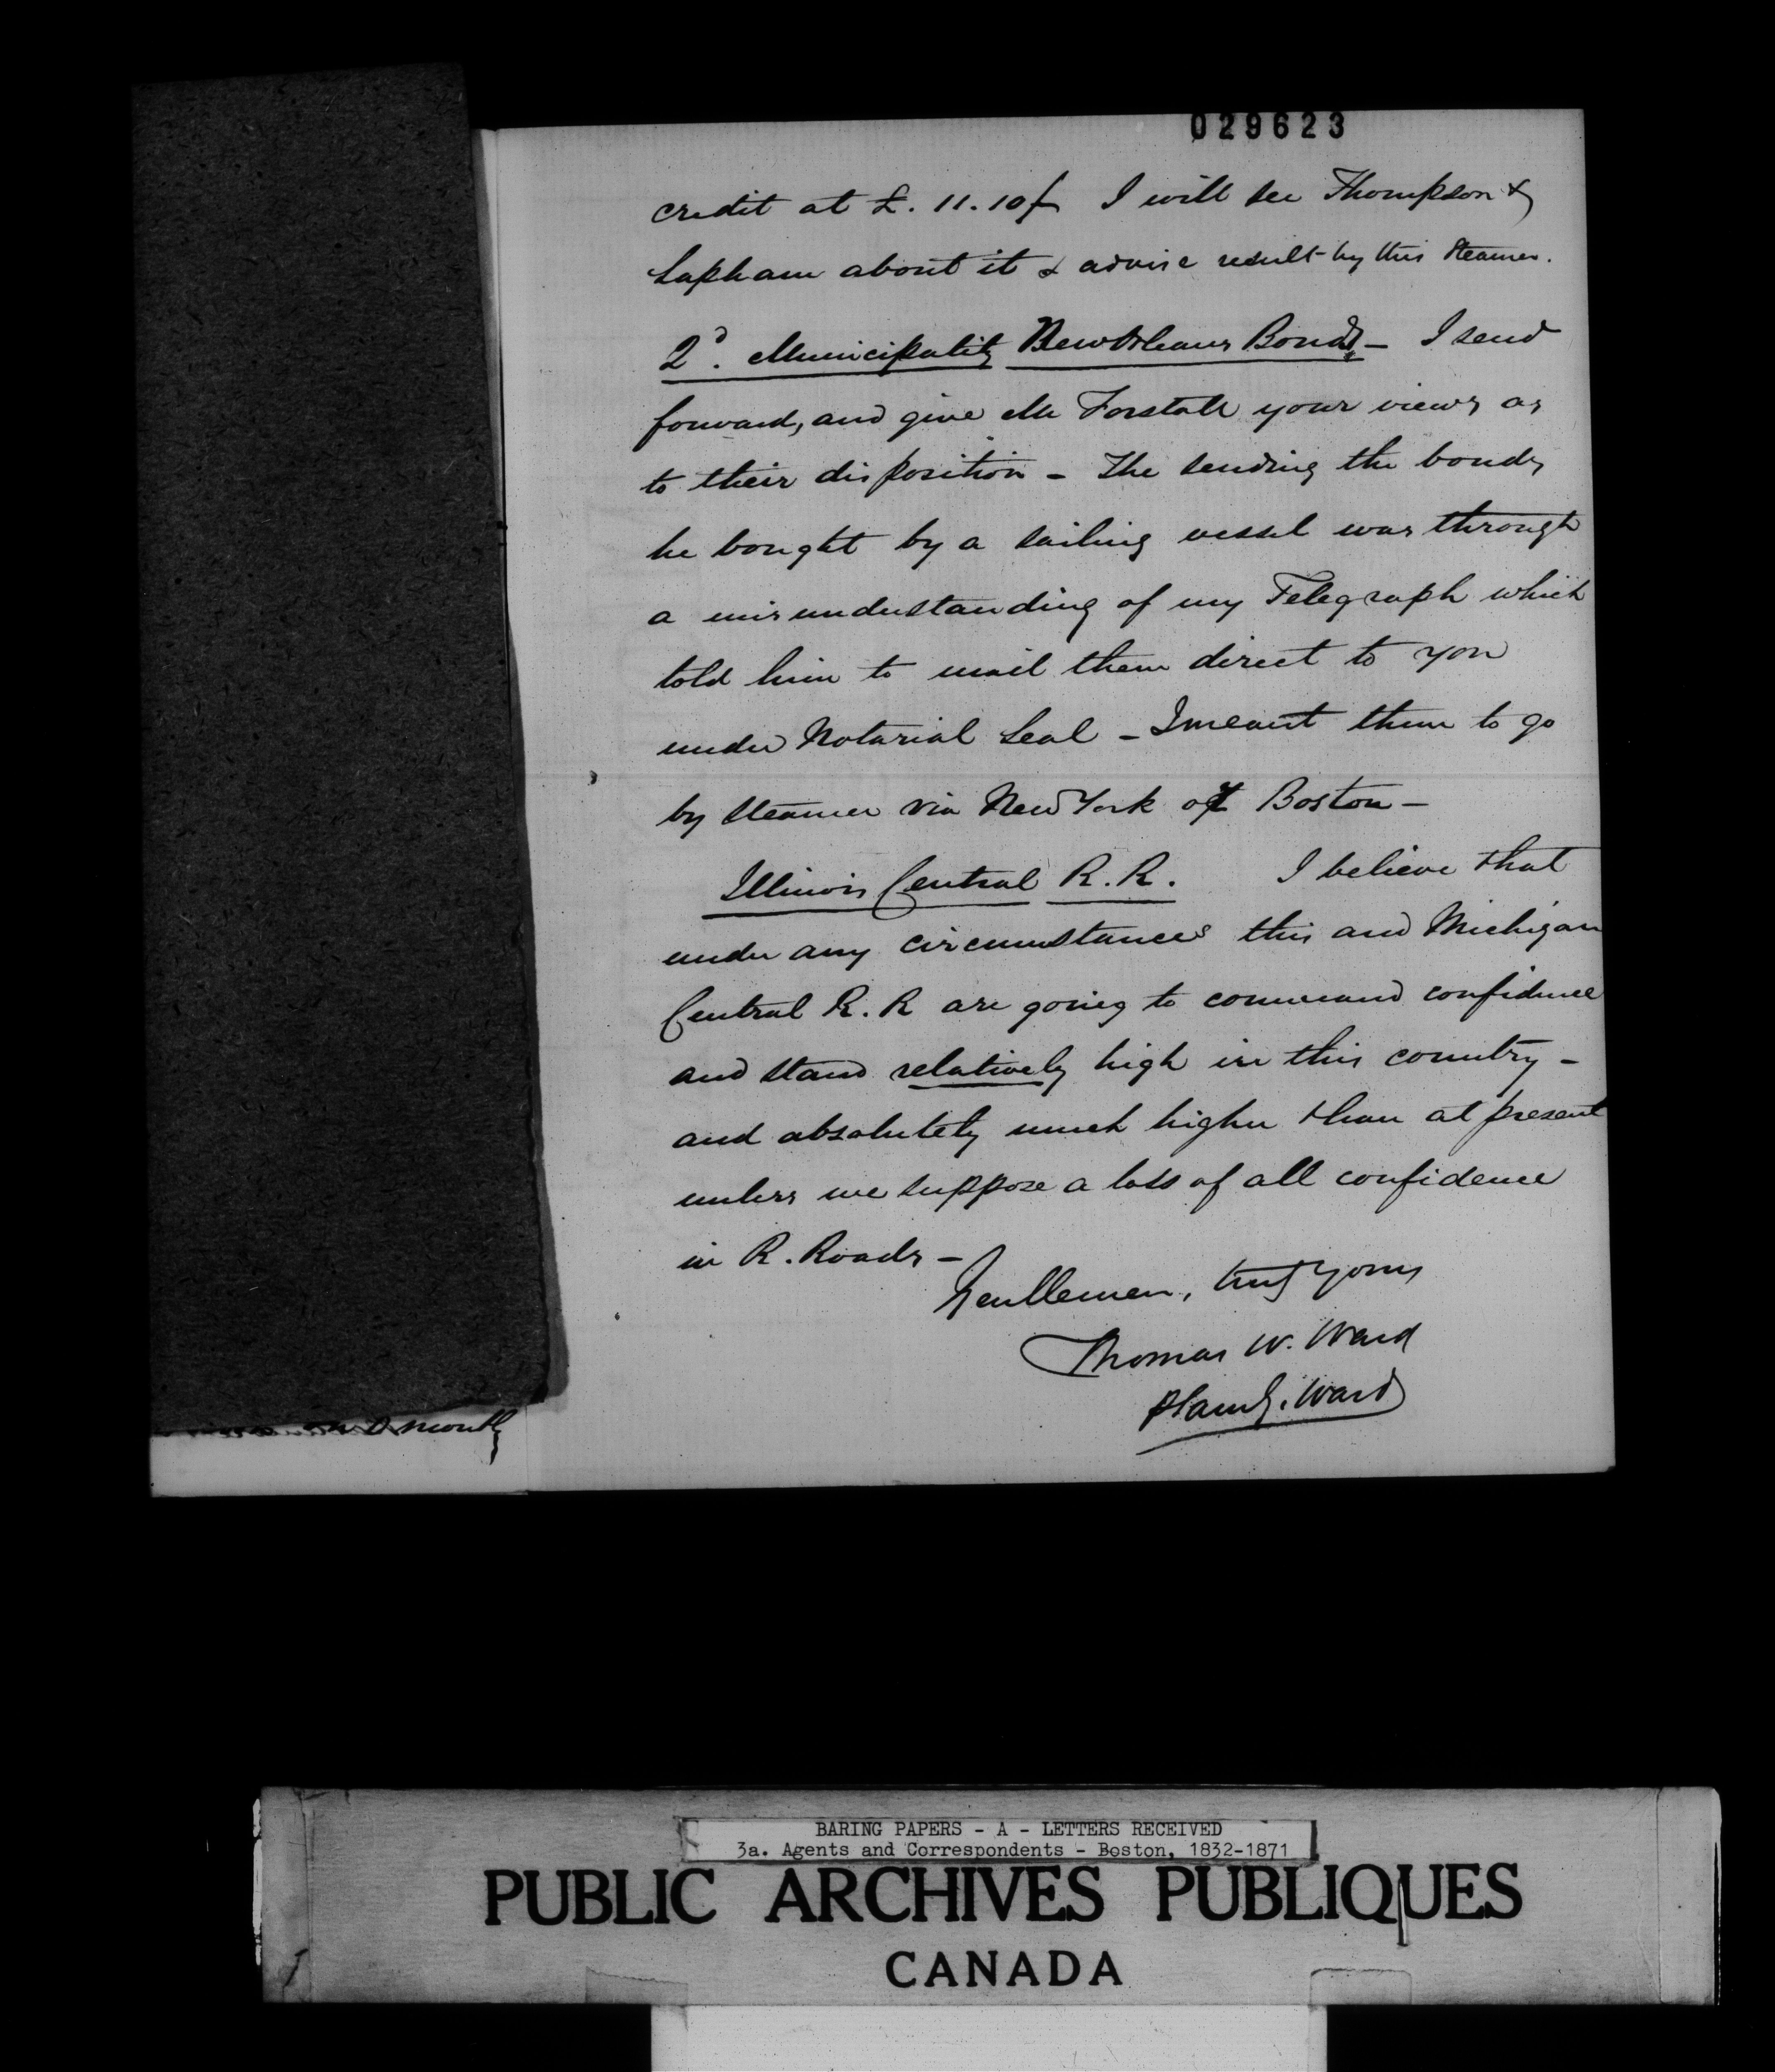 029623
credit at £. 11.10/- I will see Thompson &
Lapham about it & advise result by this Steamer.
2d. Municipality New Orleans Bonds - I send
forward, and give Mr Forstall your views as
to their disposition - The sending the bonds
he bought by a sailing vessel was through
a misunderstanding of my Telegraph which
told him to mail them direct to you
under Notarial Seal - I meant them to go
by steamer via New York or Boston -
Illinois Central R. R. I believe that
under any circumstances this and Michigan
Central R. R are going to command confidence
and stand relatively high in this country -
and absolutely much higher than at present
unless we suppose a loss of all confidence
in R. Roads -
Gentlemen, truly yours
Thomas W. Ward
Ward
month
BARING PAPERS - A - LETTERS RECEIVED
3a. Agents and Correspondents - Boston, 1832-1871
PUBLIC ARCHIVES PUBLIQUES
CANADA